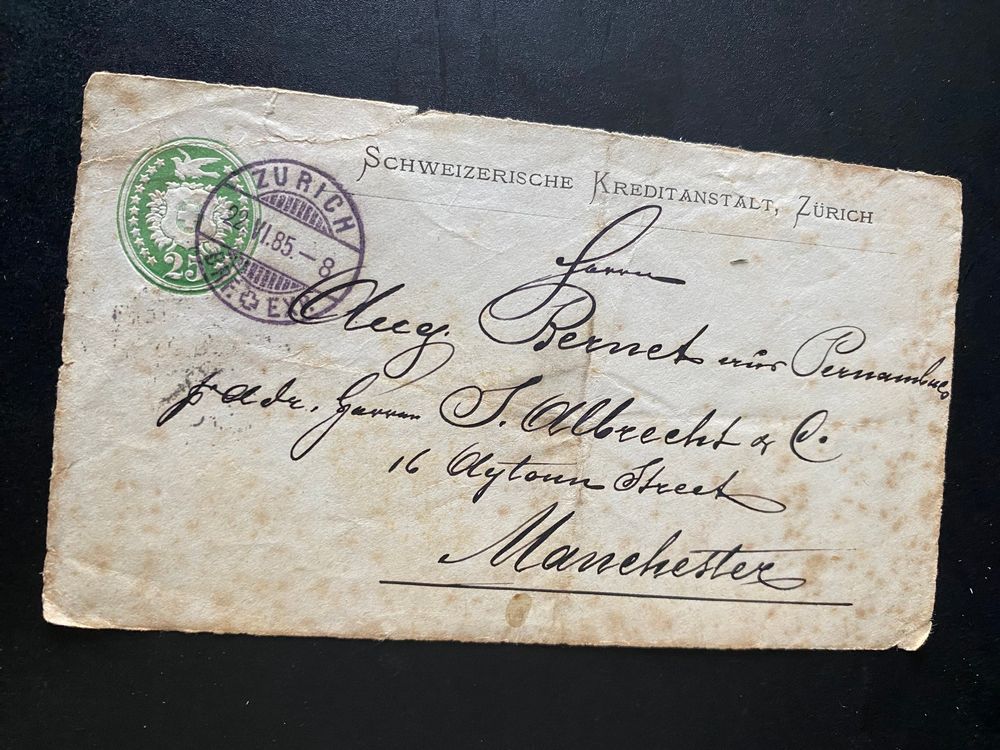 SCHWEIZERISCHE KREDITANSTALT, ZÜRICH
25
ZÜRICH
22.VI.85.–8
BRF. EXP.
Herrn
Aug. Bernet aus Pernambuco
p adr. Herren S. Albrecht & C.
16 Aytoun Street
Manchester